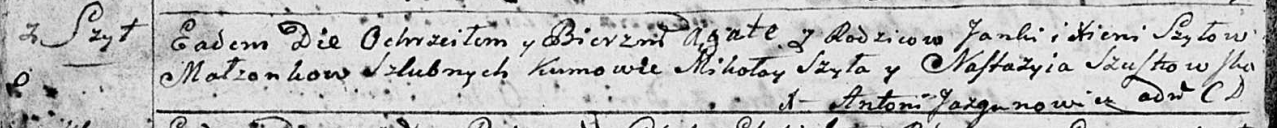 z Szył
Eadem Die Ochrzciłem y Bierzm Agatę z Rodzicow Janki i Xieni Szyłow
Małżonkow Szlubnych Kumowie Mikołay Szyła y Nastazyia Szuszkowska
X Antoni Jazgunowicz adm C D